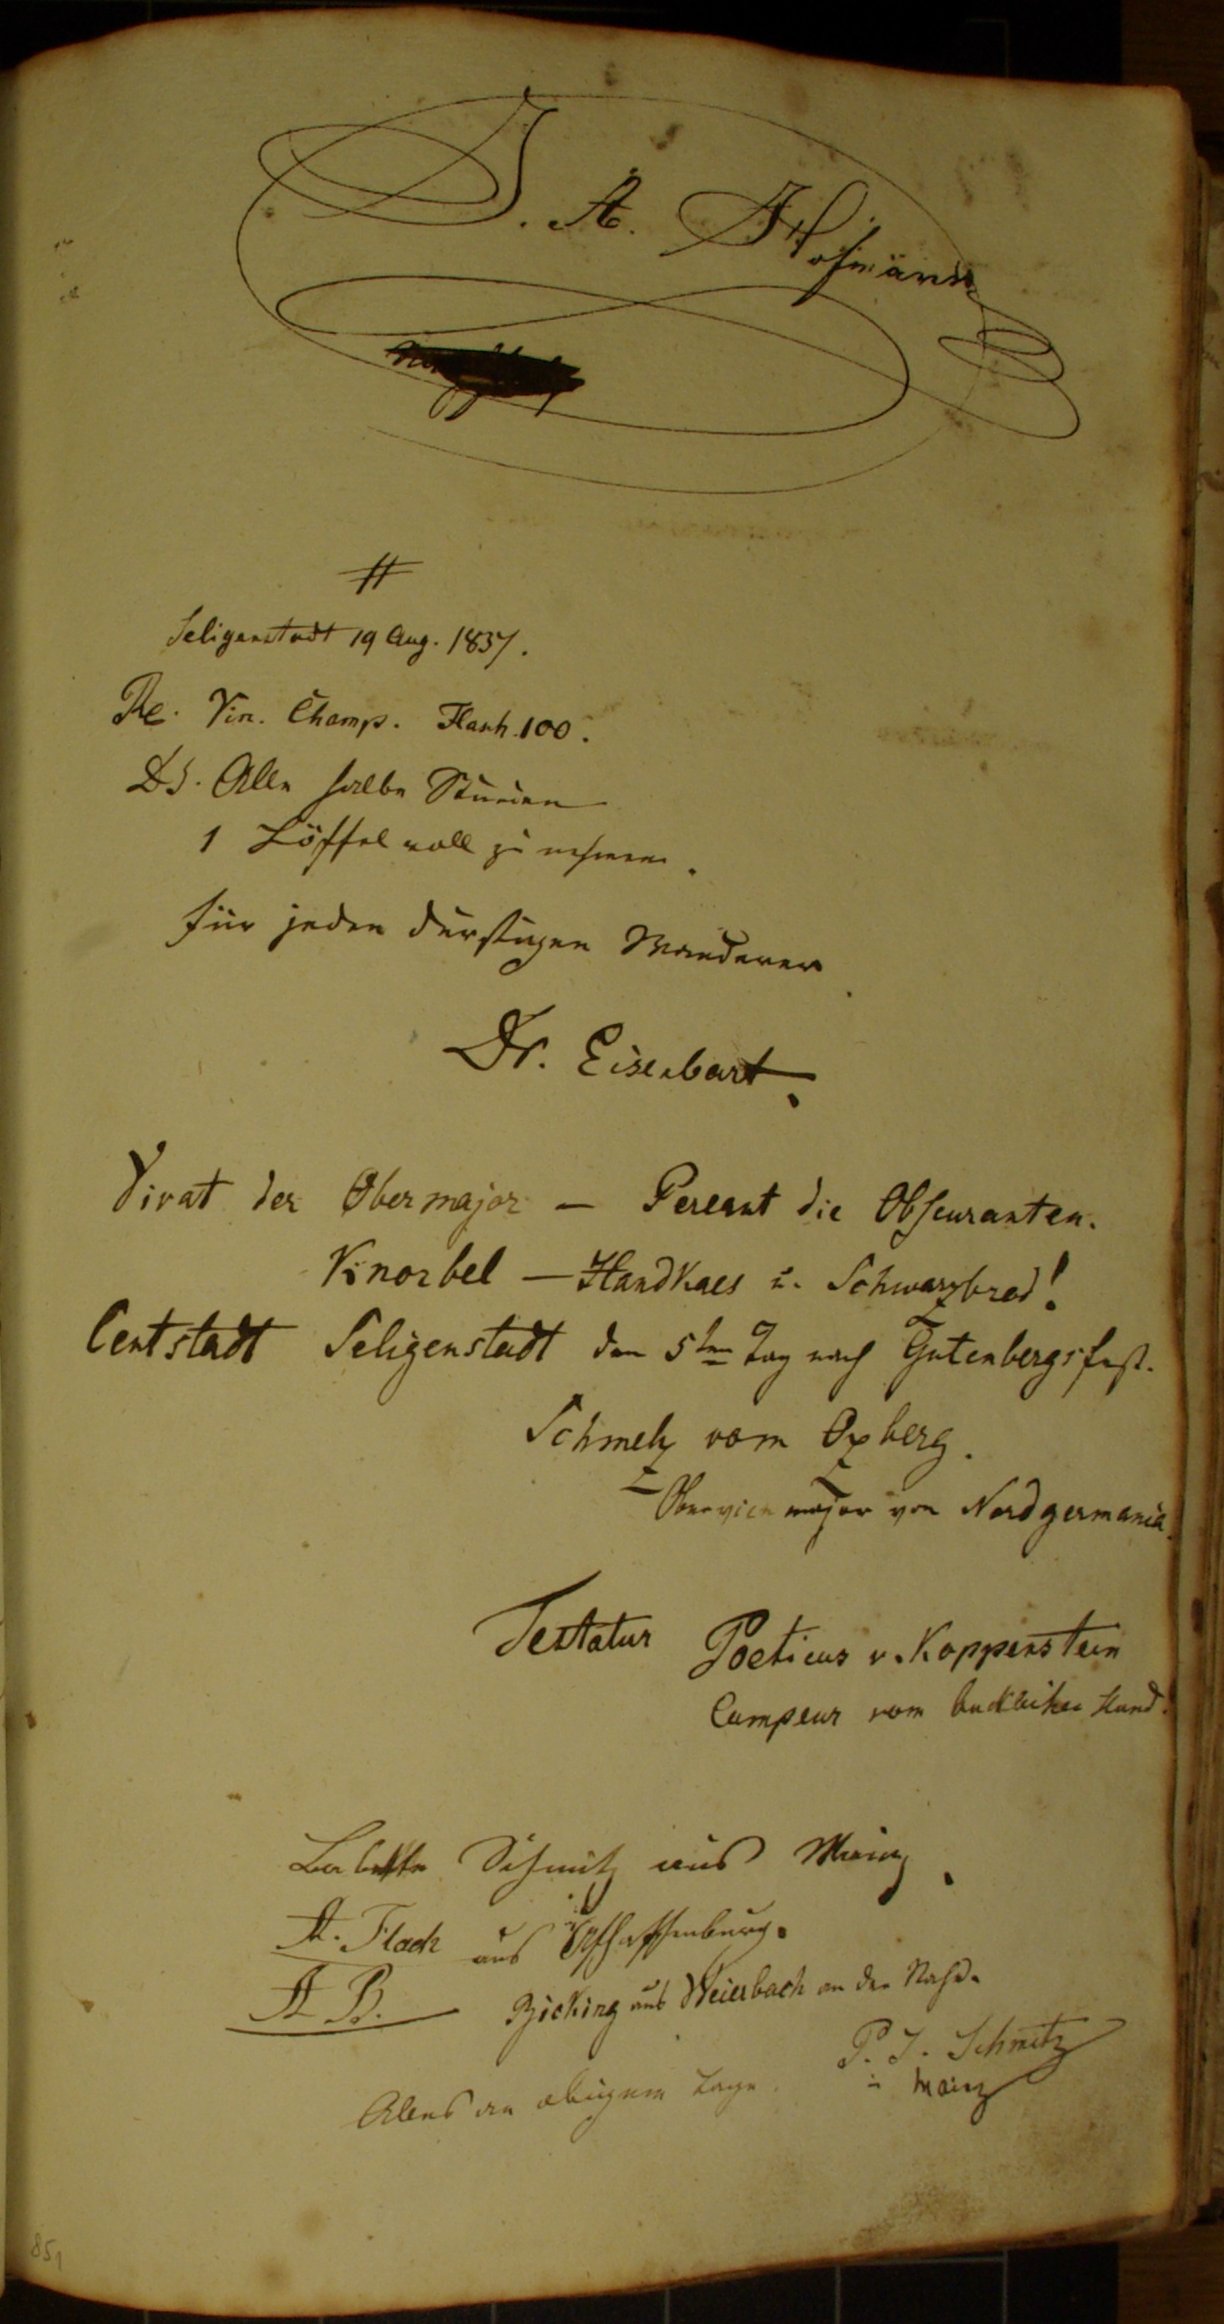 J. A. Hofmann
#
Seligenstadt 19 Aug. 1837.
Rc. Vin. Champ. Flasch. 100.
DS. Alle halbe Stunden
1 Löffel voll zu nehmen.
für jeden durstigen Wanderer.
Dr. Eisenbart.
Vivat der Obermajor – Pereant die Obscuranten.
Knorbel – Handkaes u. Schwarzbrod!
Centstadt Seligenstadt den 5ten Tag nach Gutenbergsfest.
Schmelz vom Oxberg.
Obervicemajor von Nordgermania.
Testatur Poeticus v. Koppenstein
Cumpeur vom Hund!
Babette Schmitz aus Mainz.
A. Flach aus Aschaffenburg.
A B. Bicking aus Weierbach an der Nahe.
P. J. Schmitz
Mainz
an obigem Tage.
851